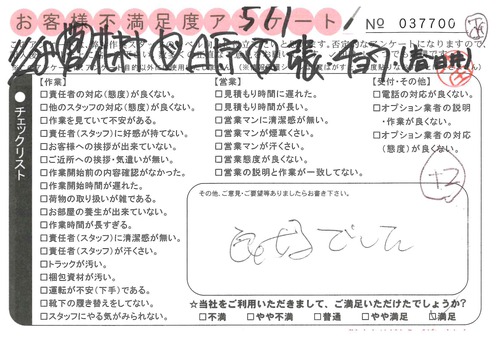 お客様不満足度アンケート
561
No 037700
チェックリスト
【作業】
□責任者の対応(態度)が良くない。
□他のスタッフの対応(態度)が良くない。
□作業を見ていて不安がある。
□責任者(スタッフ)に好感が持てない。
□お客様への挨拶が出来ていない。
□ご近所への挨拶・気遣いが無い。
□作業開始前の内容確認がなかった。
□作業開始時間が遅れた。
□荷物の取り扱いが雑である。
□お部屋の養生が出来ていない。
□作業時間が長すぎる。
□責任者(スタッフ)に清潔感が無い。
□責任者(スタッフ)が汗くさい。
□トラックが汚い。
□梱包資材が汚い。
□運転が不安(下手)である。
□靴下の履き替えをしてない。
□スタッフにやる気がみられない。
【営業】
□見積もり時間に遅れた。
□見積もり時間が長い。
□営業マンに清潔感が無い。
□営業マンが煙草くさい。
□営業マンが汗くさい。
□営業態度が良くない。
□営業の説明と作業が一致してない。
【受付・その他】
□電話の対応が良くない。
□オプション業者の説明
・作業が良くない。
□オプション業者の対応
(態度)が良くない。
その他、ご意見・ご要望等ありましたらお書き下さい。
良好でした
☆当社をご利用いただきまして、ご満足いただけたでしょうか?
□不満 □やや不満 □普通 □やや満足 □満足